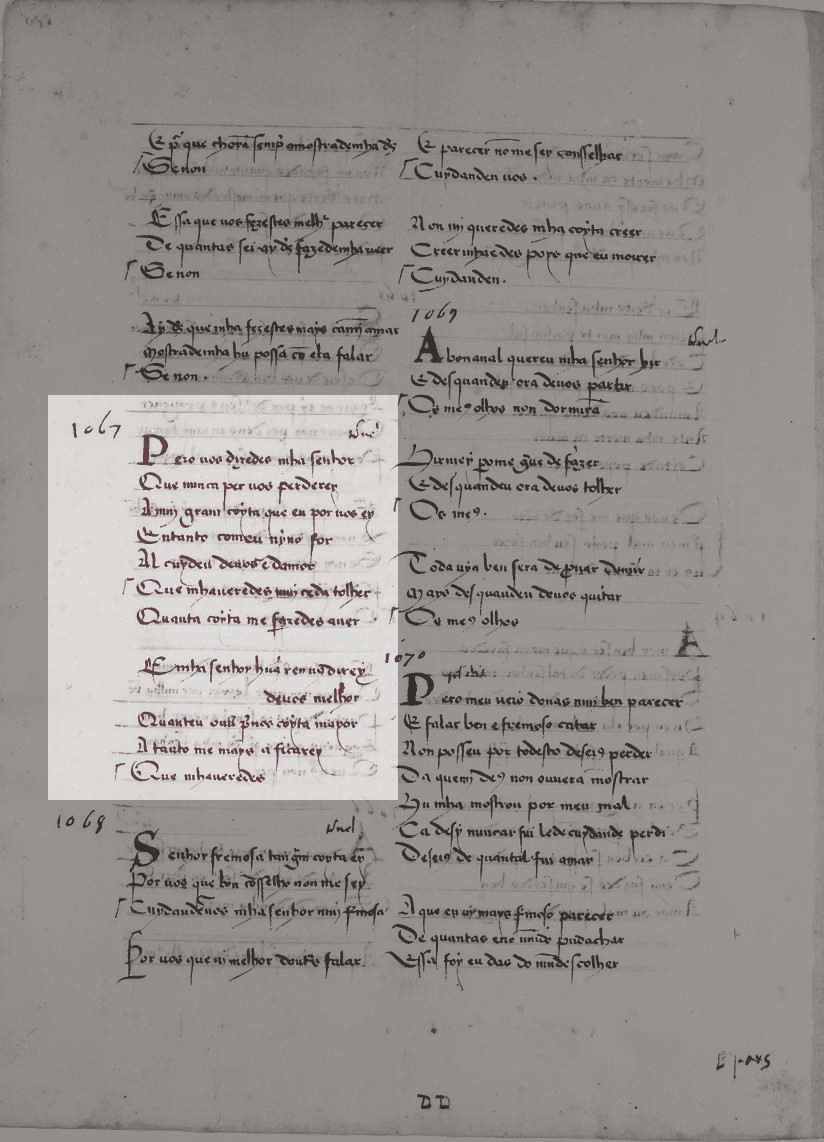 E pr̄ que chorā semp̄ amostrademha d̄s
Se non
Essa que uos fezestes melhʳ parecer
De quantas sei ay d̄s fazedemha veer
Se non
Ay d̄s que mha fezestes mays ca mī amar
Mostrademha hu possa cō ela falar
Se non.
1067
Pero uos diredes mha senhor
Que nunca per uos perderey
A mui gram coyta que eu por uos ey
Entanto comeu uyuo for
Al cuydeu deuos e damor
Que mhaueredes mui ceda tolher
Quanta coyta me fazedes auer
E mha senhor huā ren uꝯ direy
deuos melhor
Quanteu ouu̓ p̄ uos coyta mayor
A tanto me mays a ficarey
Que mhaueredes
1068
Senhor fremosa tan gm̄ coyta ey
Por uos que bon cōsselho non me sey
Cuydandēuos mha senhor mui fmosa
Por uos que ui melhor doutrās falar
E parecer non me sey consselhar
Cuydanden uos.
Non mi queredes mha coyta creer
Creer mhaedes poys que eu morrer
Cuydanden.
1069
A bonanal quereu mha senhor hir
E des quandeu ora deuos partir
Os meꝯ olhos non dormirā
Hirmey pome g̃ue de fazer
E des quandeu ora deuos tolher
Os meꝯ.
Toda uya ben sera de p̄uar dormir
Mays des quandeu deuos quitar
Os meꝯ olhos
1070
Pero meu ueio donas mui ben parecer
E falar ben e fremoso catar
Non posseu por todesto deseiꝯ perder
Da quem deꝯ non ouuera mostrar
Hu mha mostrou por meu mal
Ca desy nuncar fui lede cuydando perdi
Deseiꝯ de quantal fui amar
A que eu ui mays fmoso parecer
De quantas eno mūdo pudachar
Essa foy eu das do mūdescolher